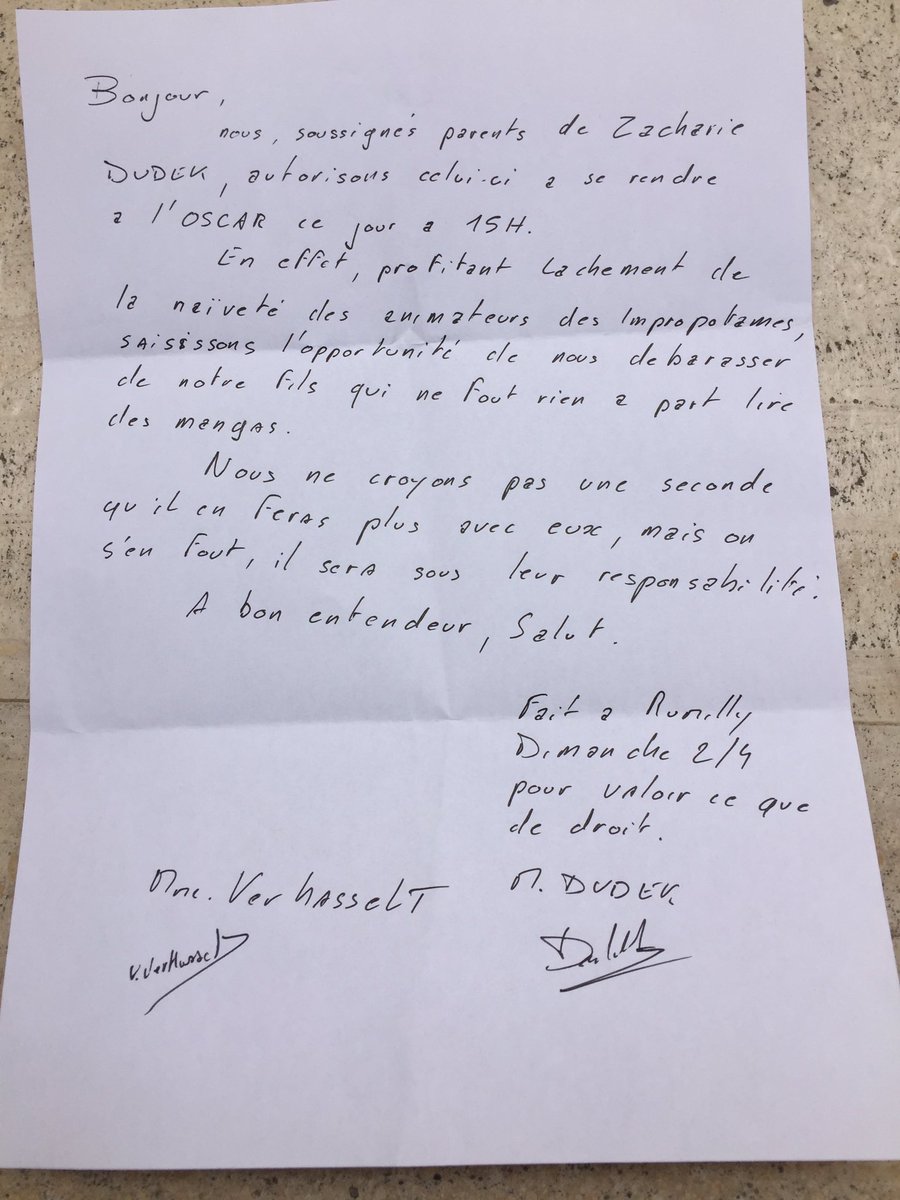 Bonjour,
nous, soussignés parents de Zacharie
DUDEK, autorisons celui-ci a se rendre
a l'OSCAR ce jour a 15H.
En effet, profitant lachement de
la naïveté des animateurs des Impropotames,
saisissons l'opportunité de nous debarasser
de notre fils qui ne fout rien a part lire
des mangas.
Nous ne croyons pas une seconde
qu'il en feras plus avec eux, mais on
s'en fout, il sera sous leur responsabilité.
A bon entendeur, Salut.
Fait a Rumilly
Dimanche 2/4
pour valoir ce que
de droit.
Mme. Verhasselt M. DUDEK
V. Verhasselt Dudek